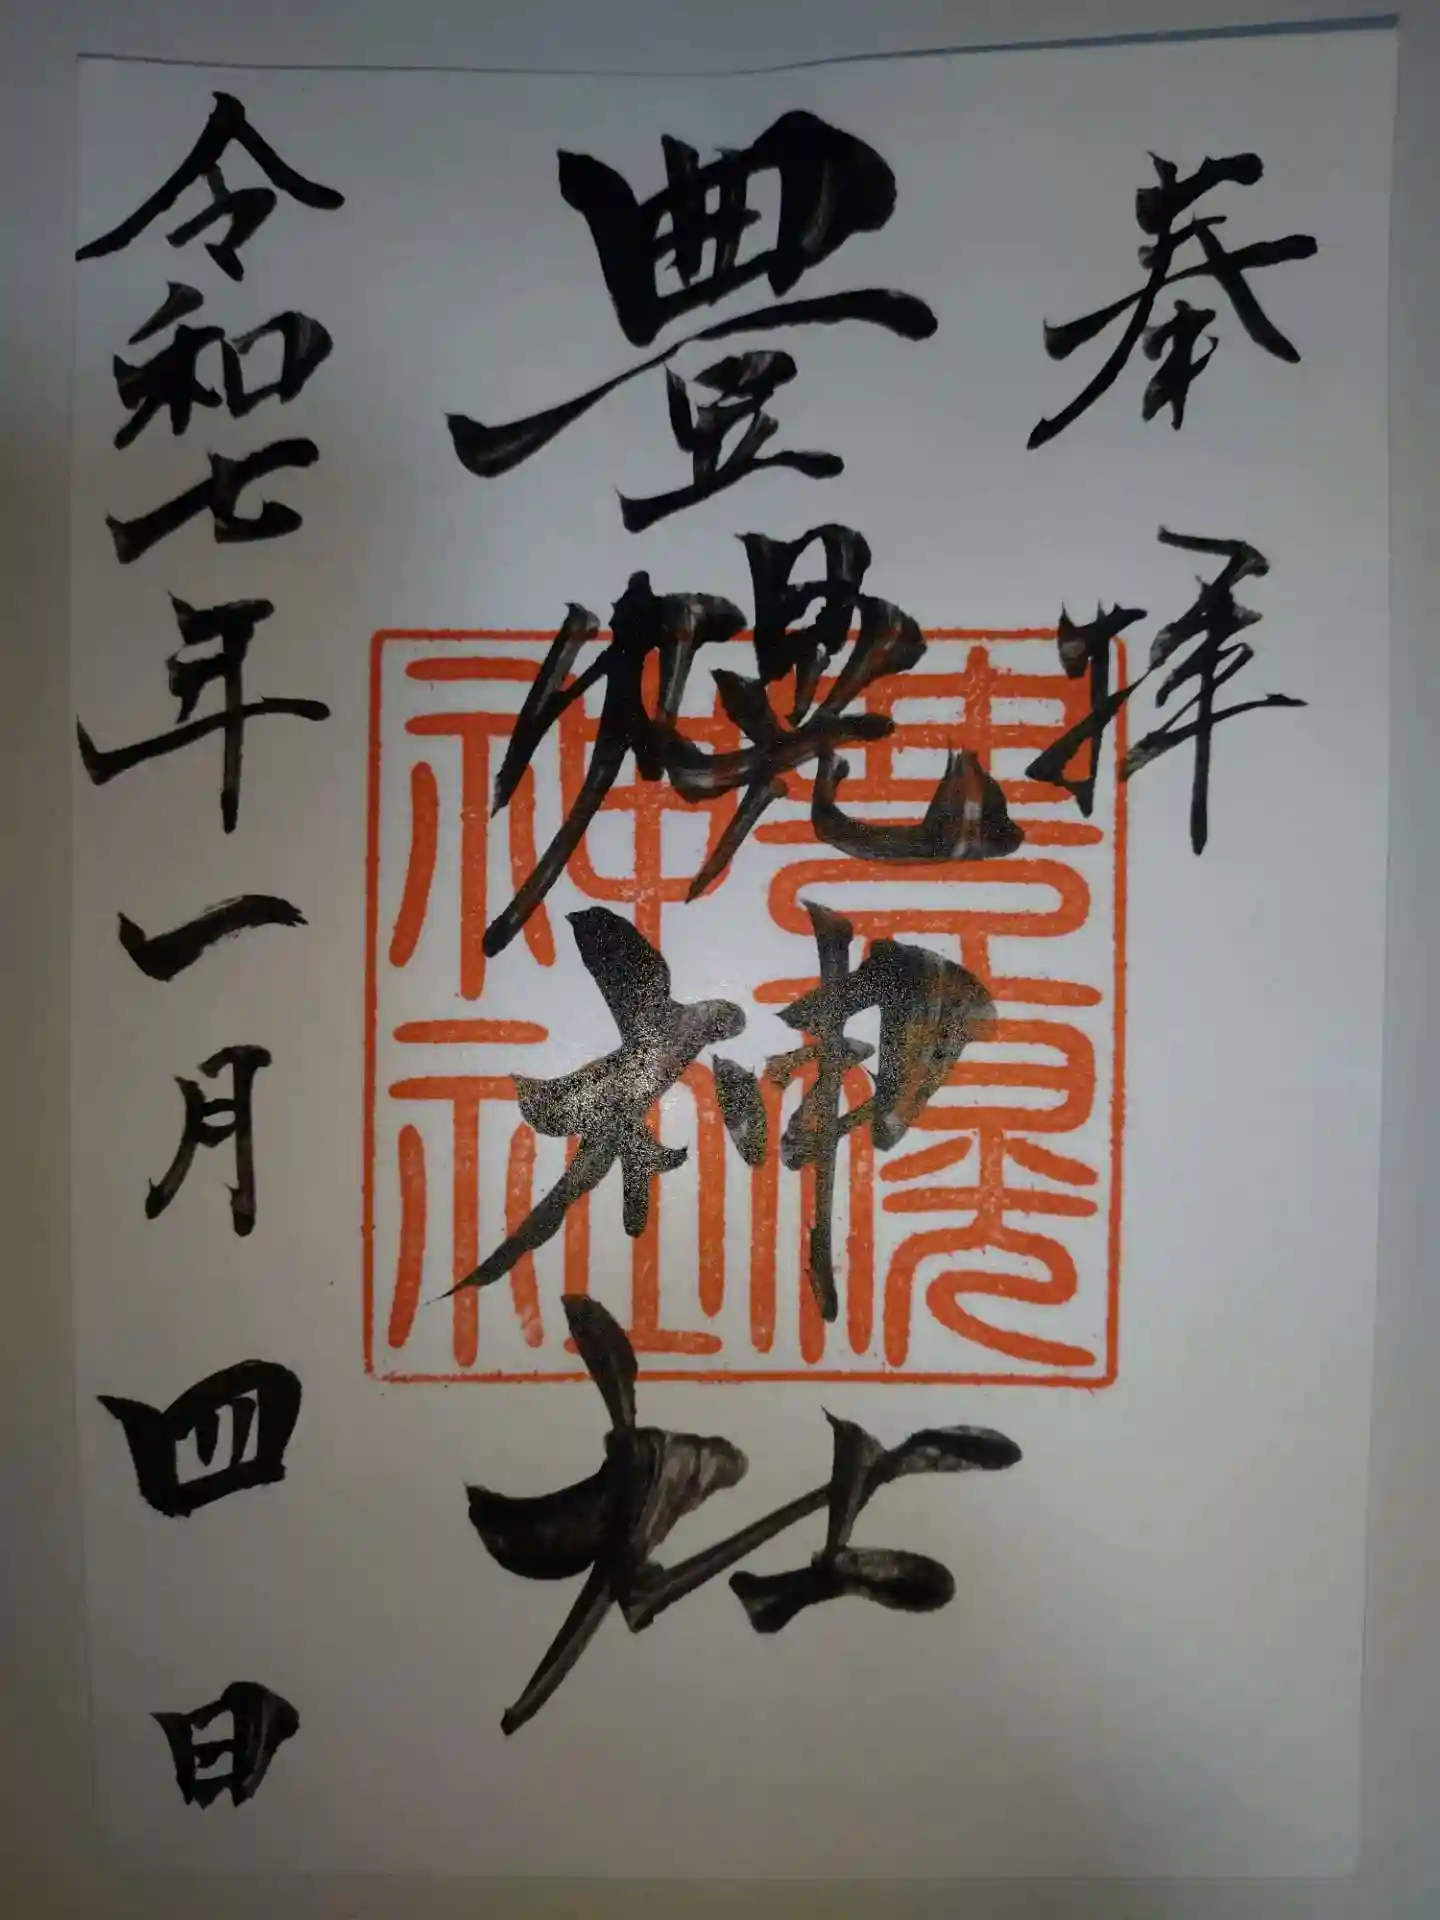 奉拝
豊幌神社
令和七年一月四日
豊幌神社